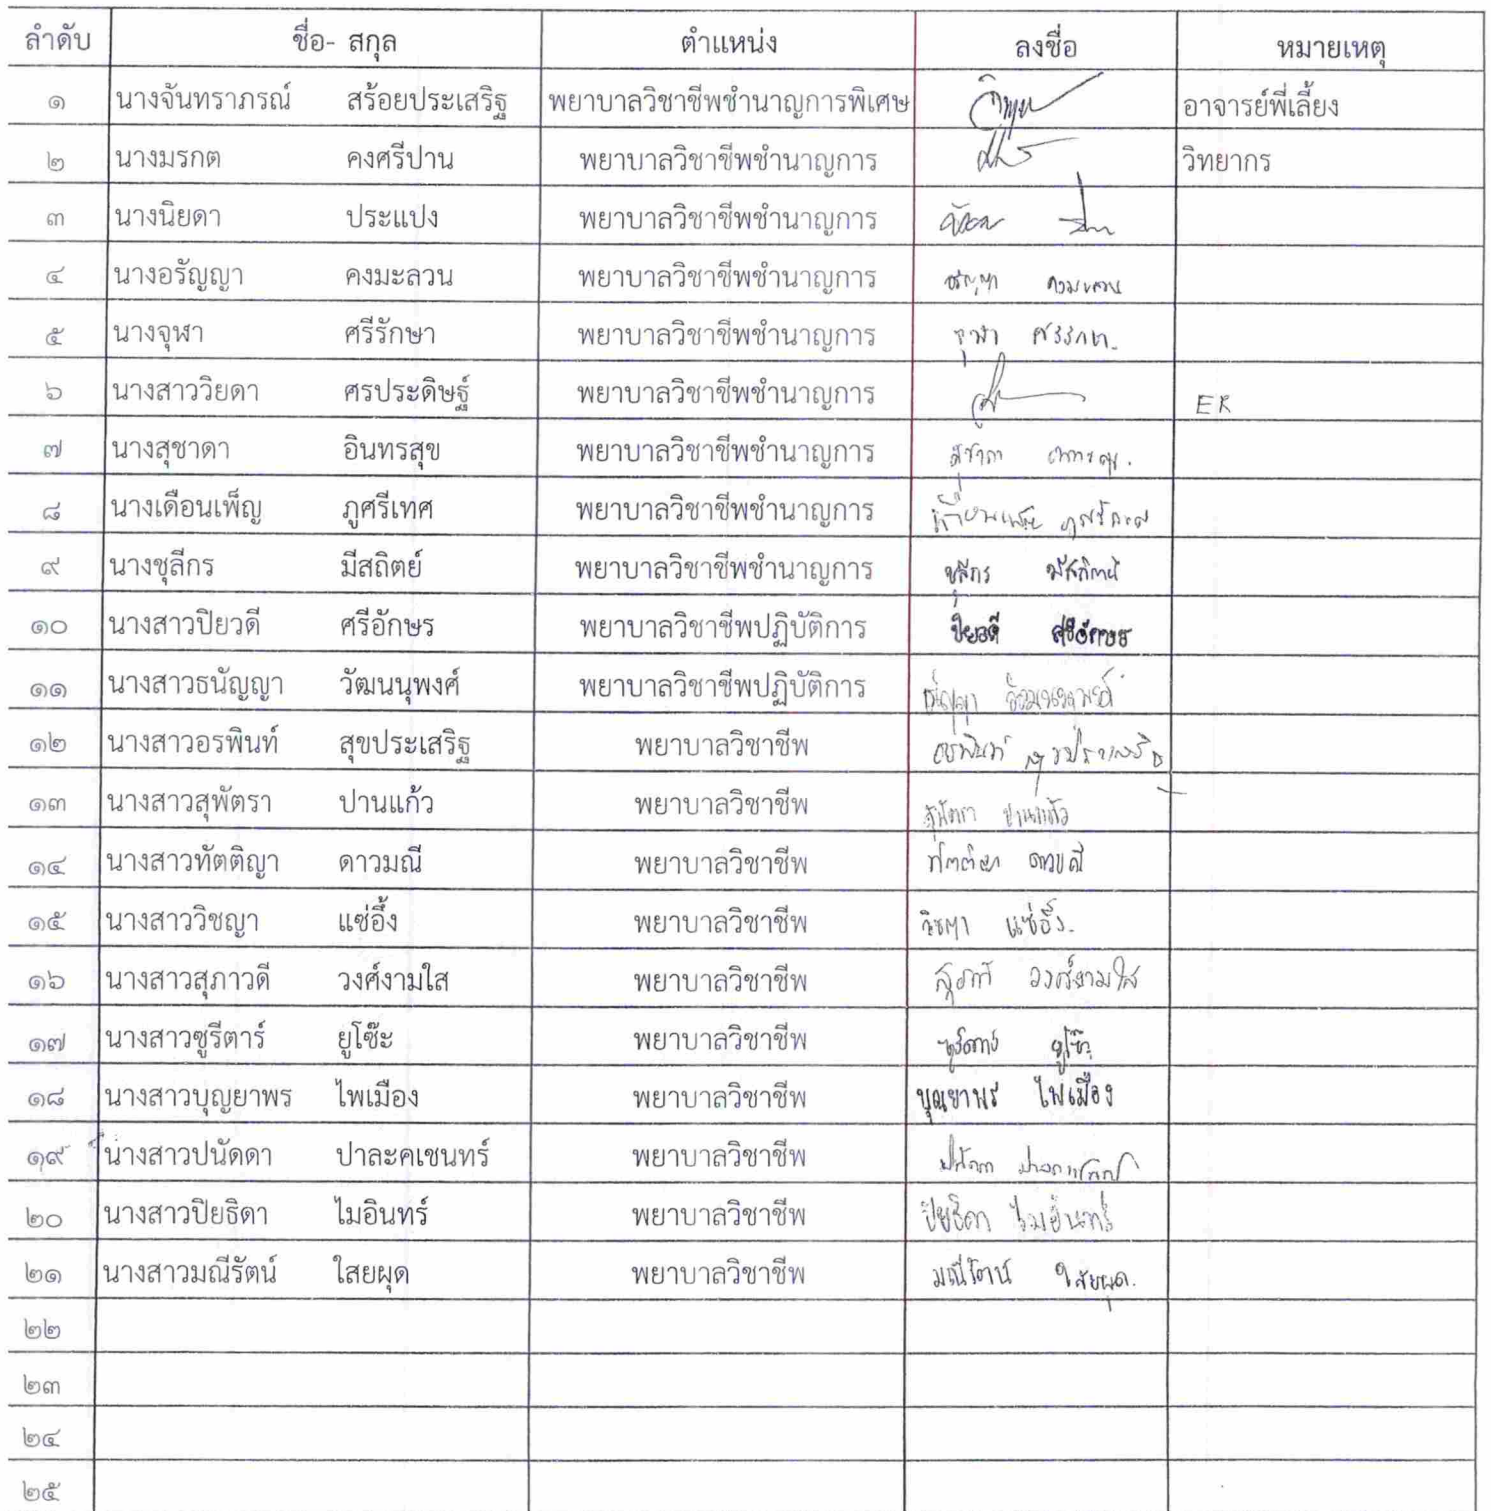 ลำดับ ชื่อ- สกุล ตำแหน่ง ลงชื่อ หมายเหตุ
๑ นางจันทราภรณ์ สร้อยประเสริฐ พยาบาลวิชาชีพชำนาญการพิเศษ อาจารย์พี่เลี้ยง
๒ นางมรกต คงศรีปาน พยาบาลวิชาชีพชำนาญการ วิทยากร
๓ นางนิยดา ประแปง พยาบาลวิชาชีพชำนาญการ
๔ นางอรัญญา คงมะลวน พยาบาลวิชาชีพชำนาญการ อรัญญา คงมะลวน
๕ นางจุฬา ศรีรักษา พยาบาลวิชาชีพชำนาญการ จุฬา ศรีรักษา
๖ นางสาววิยดา ศรประดิษฐ์ พยาบาลวิชาชีพชำนาญการ ER
๗ นางสุชาดา อินทรสุข พยาบาลวิชาชีพชำนาญการ สุชาดา อินทรสุข
๘ นางเดือนเพ็ญ ภูศรีเทศ พยาบาลวิชาชีพชำนาญการ เดือนเพ็ญ ภูศรีเทศ
๙ นางชุลีกร มีสถิตย์ พยาบาลวิชาชีพชำนาญการ ชุลีกร มีสถิตย์
๑๐ นางสาวปิยวดี ศรีอักษร พยาบาลวิชาชีพปฏิบัติการ ปิยวดี ศรีอักษร
๑๑ นางสาวธนัญญา วัฒนนุพงศ์ พยาบาลวิชาชีพปฏิบัติการ
๑๒ นางสาวอรพินท์ สุขประเสริฐ พยาบาลวิชาชีพ อรพินท์ สุขประเสริฐ
๑๓ นางสาวสุพัตรา ปานแก้ว พยาบาลวิชาชีพ สุพัตรา ปานแก้ว
๑๔ นางสาวทัตติญา ดาวมณี พยาบาลวิชาชีพ ทัตติญา ดาวมณี
๑๕ นางสาววิชญา แซ่อึ้ง พยาบาลวิชาชีพ วิชญา แซ่อึ้ง
๑๖ นางสาวสุภาวดี วงศ์งามใส พยาบาลวิชาชีพ วงศ์งามใส
๑๗ นางสาวซูรีตาร์ ยูโซ๊ะ พยาบาลวิชาชีพ ซูรีตาร์ ยูโซ๊ะ
๑๘ นางสาวบุญยาพร ไพเมือง พยาบาลวิชาชีพ บุญยาพร ไพเมือง
๑๙ นางสาวปนัดดา ปาละคเชนทร์ พยาบาลวิชาชีพ ปนัดดา
๒๐ นางสาวปิยธิดา ไมอินทร์ พยาบาลวิชาชีพ ปิยธิดา ไมอินทร์
๒๑ นางสาวมณีรัตน์ ใสยผุด พยาบาลวิชาชีพ มณีรัตน์ ใสยผุด.
๒๒
๒๓
๒๔
๒๕